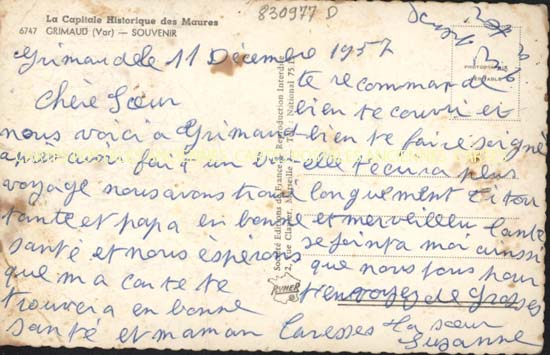 La Capitale Historique des Maures
6747 GRIMAUD (Var) — SOUVENIR
830977 D
Grimaud le 11 Décembre 1957
Chère Sœur
nous voici a Grimaud
après avoir fait un
voyage nous avons trouvé
tante et papa en bonne
santé et nous espérons
que ma carte te
trouvera en bonne
santé et maman
te recommande
bien te couvrir et
bien te faire soigné
elle t'ecrira plus
longuement
et merveilleu
se joint a moi ainsi
que nous tous pour
t'envoyer de Grosses
Caresses ta sœur
Suzanne
Société Editions de France — Reproduction Interdite
2, rue Clapier, Marseille — Tél. National 75.
PHOTO
VERITABLE